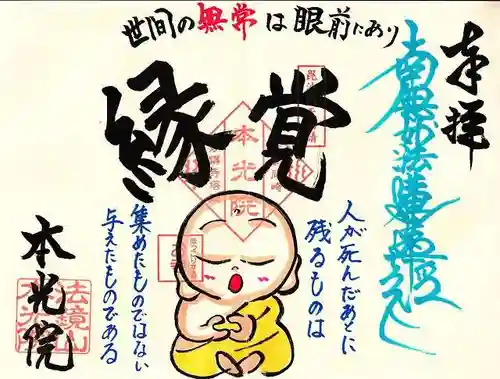 世間の無常は眼前にあり
奉拝
南無妙法蓮華経
縁覚
人が死んだあとに
残るものは
集めたものではない
与えたものである
本光院
本光院
法鏡山